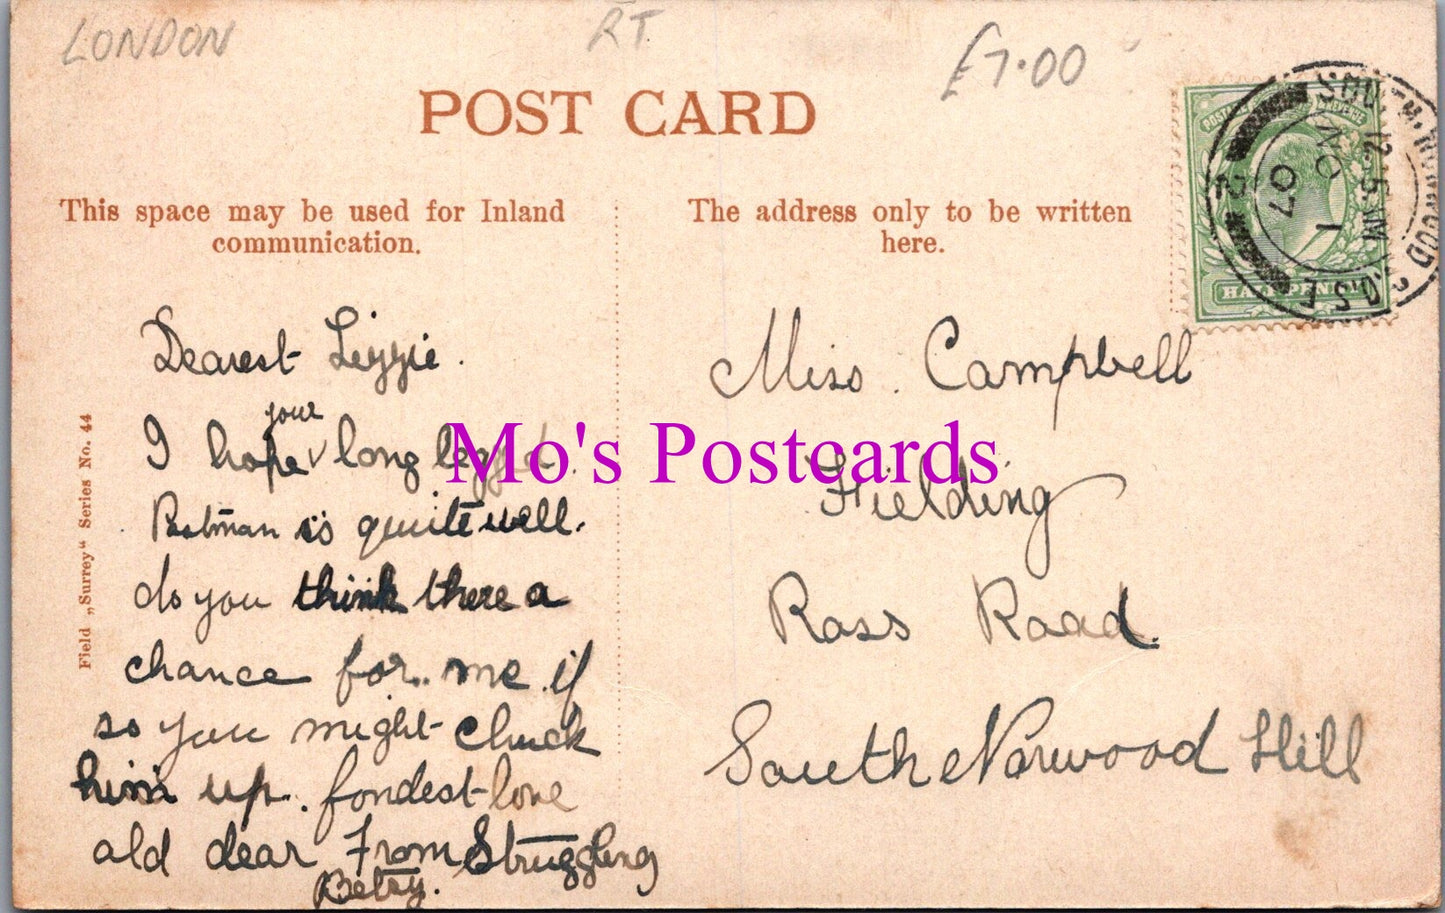 LONDON
RT
£7.00
POST CARD
This space may be used for Inland
communication.
The address only to be written
here.
SOUTH NORWOOD S.O.S.E
12.15 PM
NO 1
07
2
HALF PENNY
Field „Surrey“ Series No. 44
Dearest Lizzie.
your
I hope long legged
Postman is quite well.
do you think there a
chance for me if
so you might chuck
him up. fondest love
old dear From Struggling
Betsy.
Miss. Campbell
Fielding
Ross Road
South Norwood Hill
Mo's Postcards